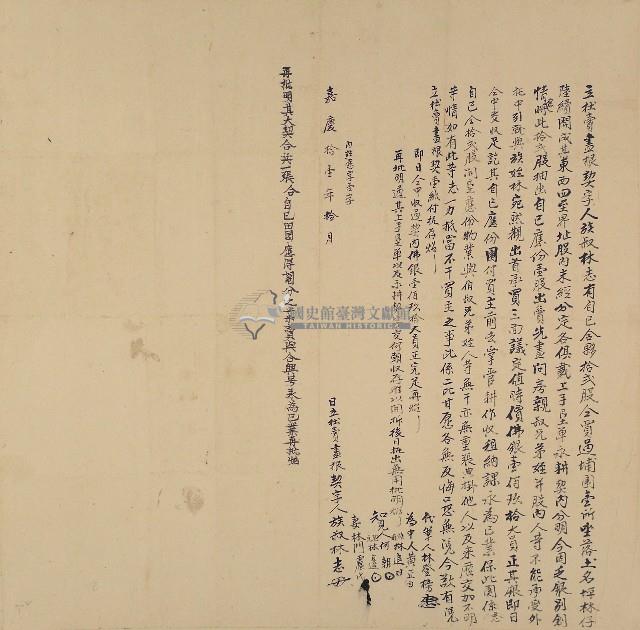 立杜賣盡根契字人族叔林志有自己合夥拾弍股仝買過埔園壹所坐落土名坪林仔
陸續開成其東西四至界址股內未經分定各俱載上手墾單永耕契內分明今因乏銀別創
情愿將此拾弍股抽出自己應份壹股出賣先盡問房親叔兄弟姪并股內人等不能承受外
托中引就與族姪林宛然觀出首承買三面議定值時價佛銀壹佰玖拾大員正其銀即日
仝中交收足訖其自己應份園付買主前去掌管耕作收租納課永為己業保此園係志
自己仝拾弍股開墾應份物業與伯叔兄弟姪人等無干亦無重張典掛他人以及來歷交加不明
等情如有此等志一力抵當不干買主之事此係二比甘愿各無反悔口恐無憑今欲有憑
立杜賣盡根契壹紙付執存炤
即日仝中收過契內佛銀壹佰玖拾大員正完足再炤
再批明透其上手墾單以及永耕
交付
收存
後日批出無用批明
代筆人林登榜
為中人黃
知見人
妻林門
內註
字壹字
嘉慶拾壹年拾月
日立杜賣盡根契字人族叔林志
再批明其大契合共一張合自己田園應得
份之業賣與合興号永為己業再批炤
國史館臺灣文獻館
TAIWAN HISTORICA